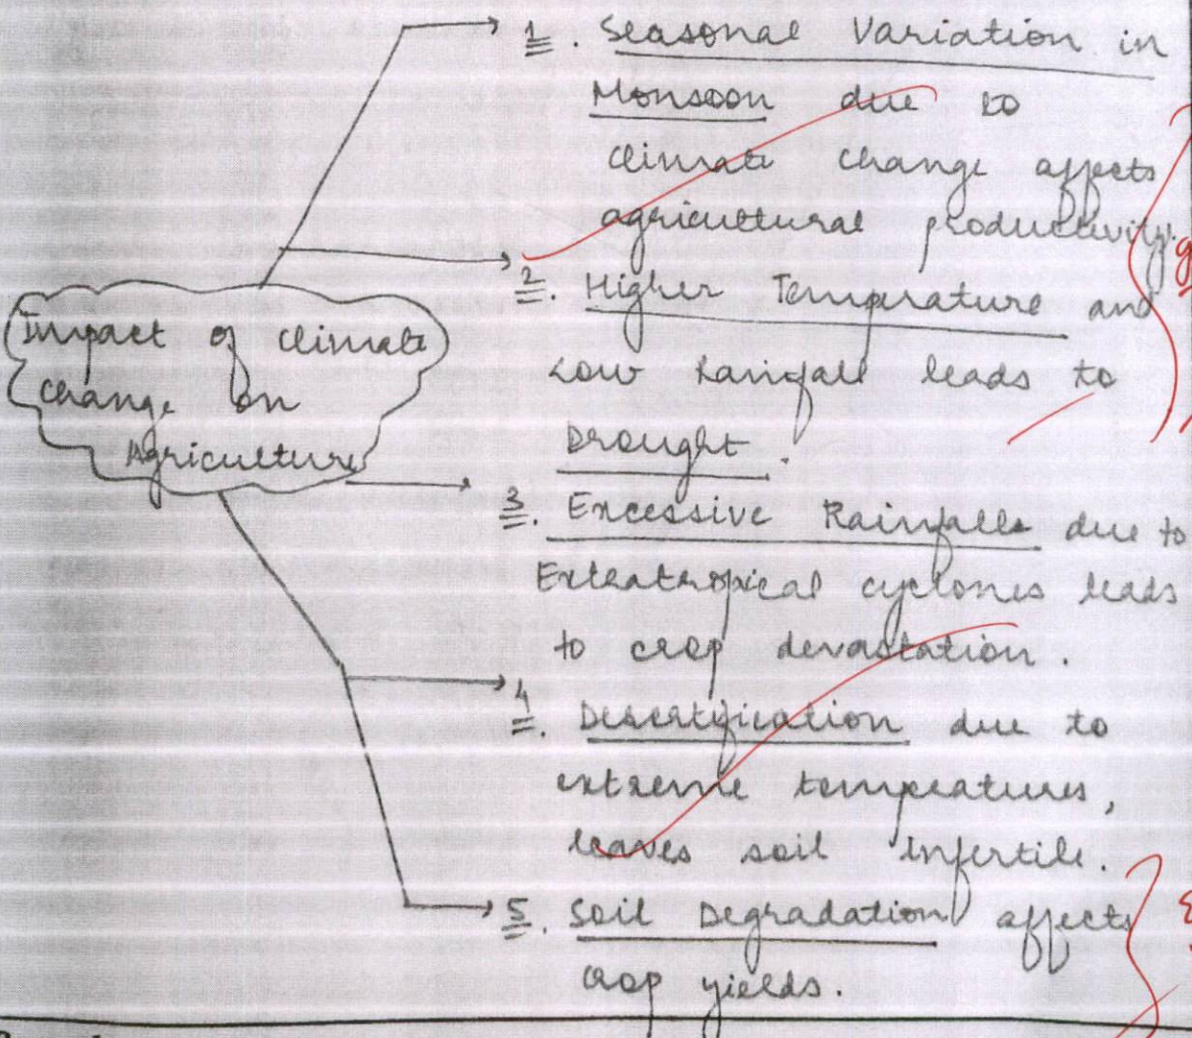 Impact of Climate
Change on
Agriculture
1. Seasonal Variation in
Monsoon due to
climate change affects
agricultural productivity.
2. Higher Temperature and
Low Rainfall leads to
Drought
3. Excessive Rainfalls due to
Extratropical cyclones leads
to crop devastation.
4. Desertification due to
extreme temperatures,
leaves soil infertile.
5. Soil Degradation affects
crop yields.